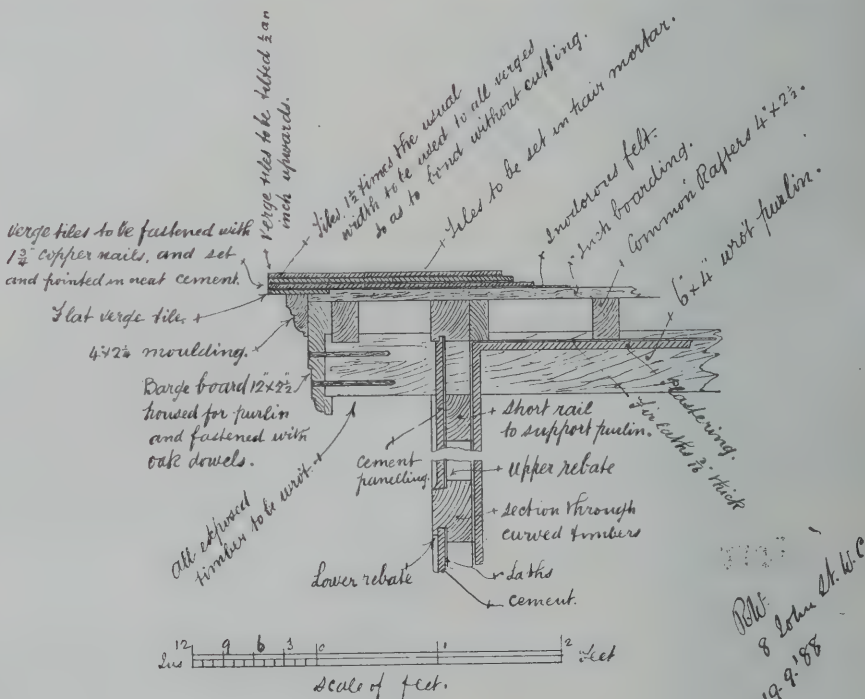 Verge tiles to be tilted ½ an
inch upwards.
Tiles 1½ times the usual
width to be used to all verges
so as to bond without cutting.
Tiles to be set in hair mortar.
Inodorous felt.
1" Inch boarding.
Common Rafters 4"x2½".
6"x4" wrot purlin.
Verge tiles to be fastened with
1¾" copper nails, and set
and pointed in neat cement.
Flat verge tile.
4"x2½" moulding.
Barge board 12"x2½"
housed for purlin
and fastened with
oak dowels.
all exposed
timber to be wrot.
cement
panelling.
short rail
to support purlin.
Upper rebate
section through
curved timbers
Plastering.
Fir laths thick
Lower rebate
Laths
cement.
12 9 6 3 0 1 2
Ins Feet
scale of feet.
R.W.
8 John St. W.C.
19.9.'88